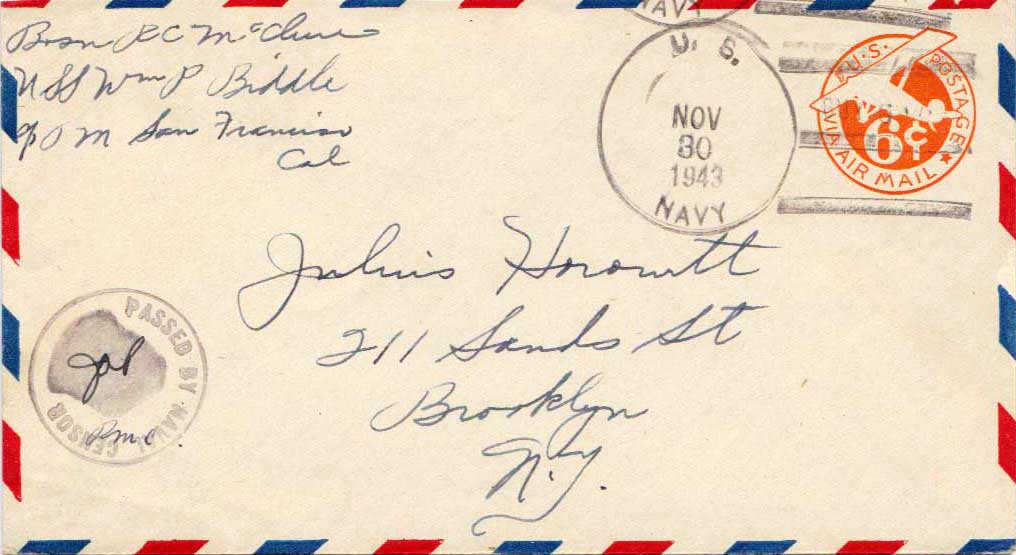 Bosn R C McClure
USS Wm P Biddle
℅ P M San Francisco
Cal
NAVY
U. S.
NOV
30
1943
NAVY
U.S. POSTAGE
6¢
VIA AIR MAIL
Julius Horowitt
211 Sands St
Brooklyn
N.Y.
PASSED BY NAVAL CENSOR